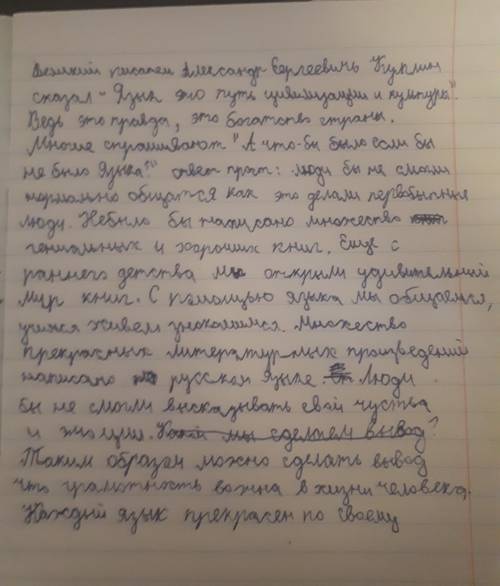 Великий писатель Александр Сергеевичь Куприн
сказал - Язык это путь цивилизации и культуры".
Ведь это правда, это богатство страны.
Многие спрашивают "А что-бы было если бы
не было языка?" ответ прост: люди бы не смогли
нормально общатся как это делали первобытные
люди. Небыло бы написано множество
гениальных и хороших книг. Еще с
раннего детства мы открыли удивительный
мир книг. С помощью языка мы общаемся,
учимся живем знакомимся. Множество
прекрасных литературных произведений
написано русском языке Люди
бы не смогли высказывать свои чуства
и эмоции. мы сделаем вывод?
Таким образом можно сделать вывод
что грамотность важна в жизни человека.
Каждый язык прекрасен по своему